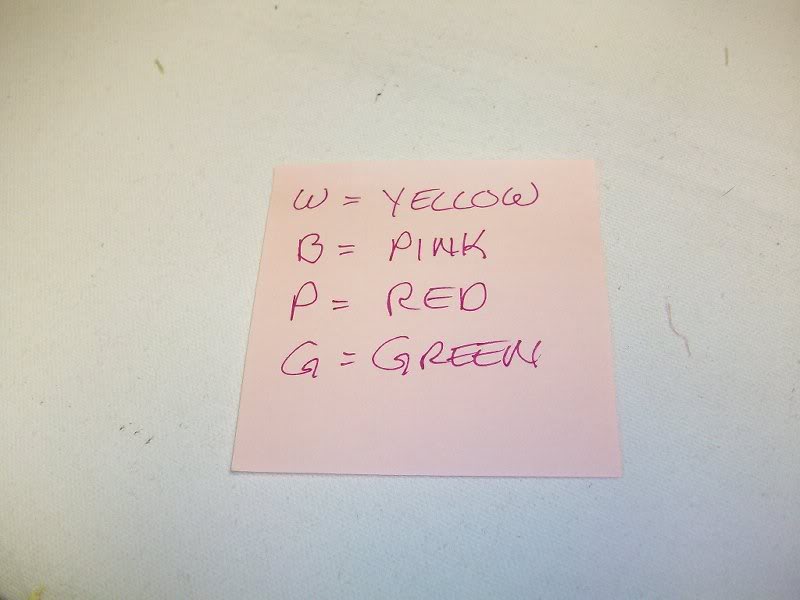 W = YELLOW
B = PINK
P = RED
G = GREEN